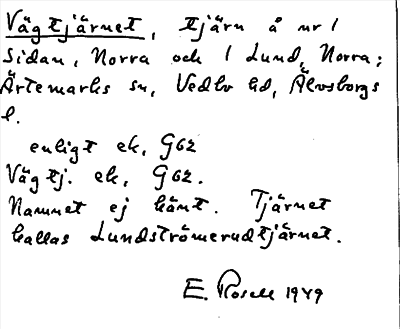 Vägtjärnet, tjärn å nr 1
Sidan, Norra och 1 Lund, Norra;
Ärtemarks sn, Vedbo hd, Älvsborgs
l.
enligt ek. G62
Vägtj. ek. G62.
Namnet ej känt. Tjärnet
kallas Lundströmerudtjärnet.
E. Rosell 1949